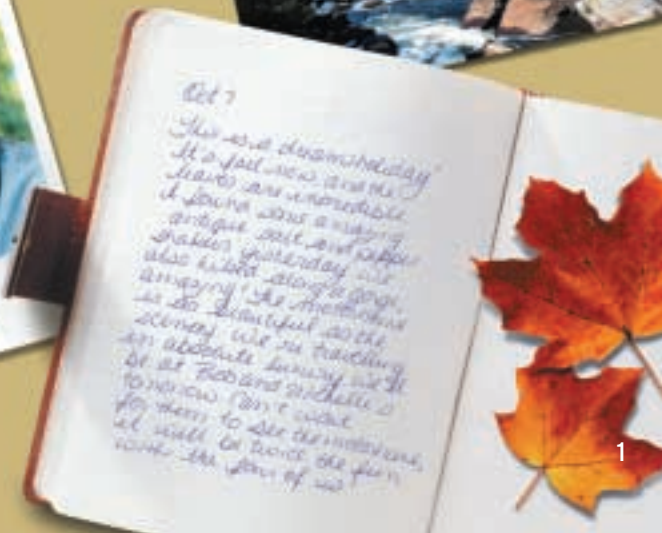 Oct 7
This is a dream holiday
It's fall now and the
leaves are incredible
I found some amazing
antique salt and pepper
shakers yesterday we
also hiked along a gorge
amazing! The
is so beautiful so the
scenery we're travelling
in absolute luxury we'll
be at Bob and Michelle's
tomorrow Can't wait
for them to see the motorhome
it will be twice the fun
with the four of us
1